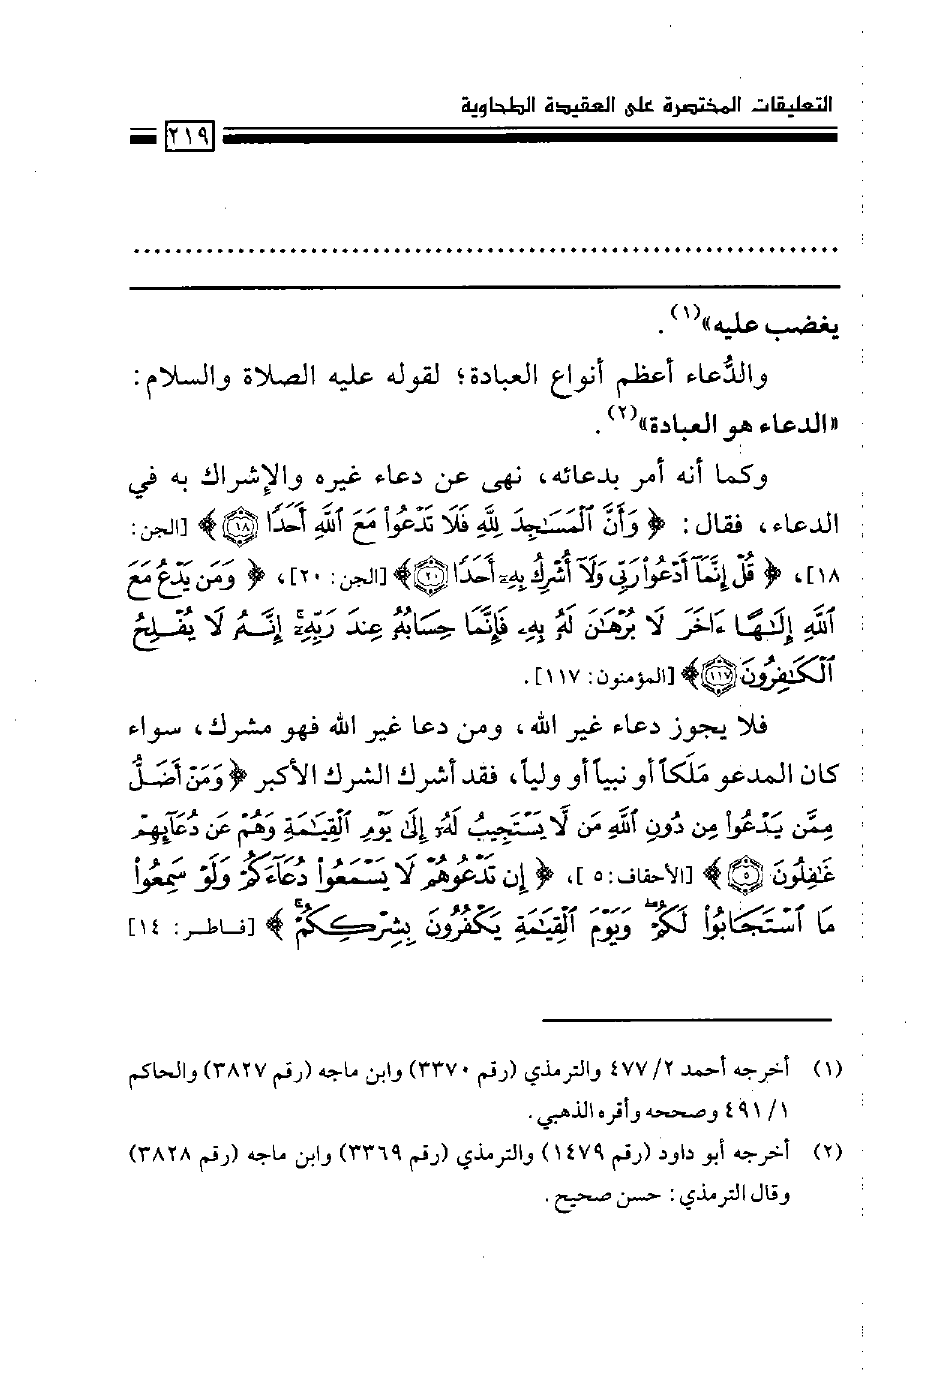 التعليقات المختصرة على العقيدة الطحاوية
٢١٩
يغضب عليه»(١).
والدُّعاء أعظم أنواع العبادة؛ لقوله عليه الصلاة والسلام:
«الدعاء هو العبادة»(٢).
وكما أنه أمر بدعائه، نهى عن دعاء غيره والإشراك به في
الدعاء، فقال: ﴿ وَأَنَّ ٱلْمَسَٰجِدَ لِلَّهِ فَلَا تَدْعُوا۟ مَعَ ٱللَّهِ أَحَدًا ١٨ ﴾ [الجن:
١٨]، ﴿ قُلْ إِنَّمَآ أَدْعُوا۟ رَبِّى وَلَآ أُشْرِكُ بِهِۦٓ أَحَدًا ٢٠ ﴾ [الجن: ٢٠]، ﴿ وَمَن يَدْعُ مَعَ
ٱللَّهِ إِلَٰهًا ءَاخَرَ لَا بُرْهَٰنَ لَهُۥ بِهِۦ فَإِنَّمَا حِسَابُهُۥ عِندَ رَبِّهِۦٓ إِنَّهُۥ لَا يُفْلِحُ
ٱلْكَٰفِرُونَ ١١٧ ﴾ [المؤمنون: ١١٧].
فلا يجوز دعاء غير الله، ومن دعا غير الله فهو مشرك، سواء
كان المدعو مَلَكاً أو نبياً أو ولياً، فقد أشرك الشرك الأكبر ﴿ وَمَنْ أَضَلُّ
مِمَّن يَدْعُوا۟ مِن دُونِ ٱللَّهِ مَن لَّا يَسْتَجِيبُ لَهُۥٓ إِلَىٰ يَوْمِ ٱلْقِيَٰمَةِ وَهُمْ عَن دُعَآئِهِمْ
غَٰفِلُونَ ٥ ﴾ [الأحقاف: ٥ ]، ﴿ إِن تَدْعُوهُمْ لَا يَسْمَعُوا۟ دُعَآءَكُمْ وَلَوْ سَمِعُوا۟
مَا ٱسْتَجَابُوا۟ لَكُمْ ۖ وَيَوْمَ ٱلْقِيَٰمَةِ يَكْفُرُونَ بِشِرْكِكُمْ ۚ ﴾ [فاطر: ١٤]
(١) أخرجه أحمد ٢/ ٤٧٧ والترمذي (رقم ٣٣٧٠) وابن ماجه (رقم ٣٨٢٧) والحاكم
١/ ٤٩١ وصححه وأقره الذهبي.
(٢) أخرجه أبو داود (رقم ١٤٧٩) والترمذي (رقم ٣٣٦٩) وابن ماجه (رقم ٣٨٢٨)
وقال الترمذي: حسن صحيح.